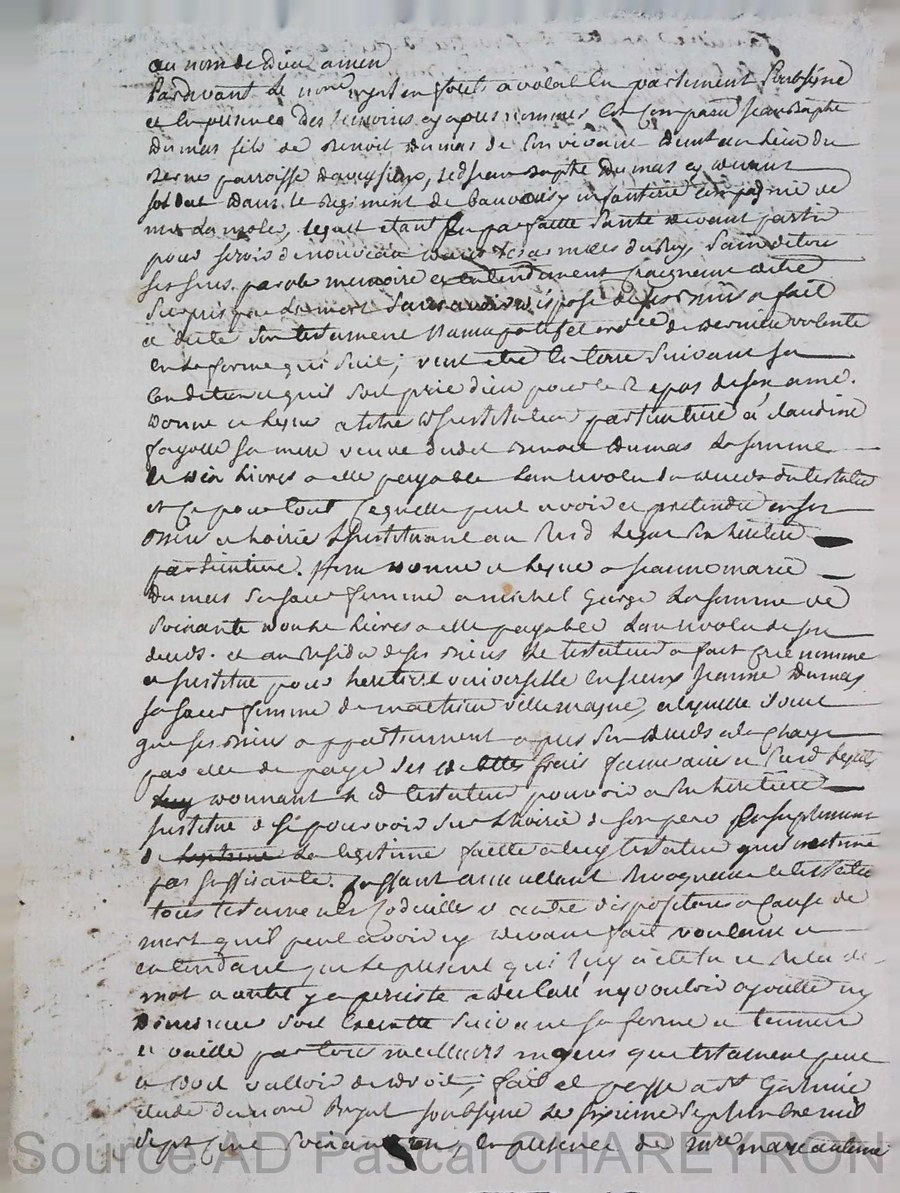 au nom de Dieu amen
Pardevant le not. royal en forez a volat en partement soubsigné
et en presence des temoins cy apres nommés est comparu jean bapte
Dumas fils de benoit dumas de son vivant au lieu du
verne parroisse daveysieu, led jean bapte dumas cy devant
soldat dans le regiment de bauvoisy infanterie compagnie de
mr de la mole, lequel etant en parfaitte santé devant partir
pour servir de nouveau dans les armées du roy, sain de tous
ses sens parole memoire et entendement craignant detre
surpris par la mort sans avoir disposé de ses biens a fait
et dicté son testament et ord.ce de derniere volonté
en la forme qui suit, veut etre enterré suivant sa
condition et quil soit prié dieu pour le repos de son ame.
donne et legue a titre dinstitution particuliere a claudine
fayolle sa mere veuve dudit benoit dumas la somme
de dix livres a elle payable lan revolu du deceds du testateur
et ce pour tout ce quelle peut avoir et pretendre en ses
biens et hoirie linstituant au susd legat son heritiere
particuliere. item donne et legue a jeanne marie
dumas sa soeur femme a michel george la somme de
soixante douze livres a elle payable lan revolu de son
deceds. et au residu de ses biens le testateur a fait cree nommé
et institué pour heritiere universelle en iceux jeanne dumas
sa soeur femme de mathieu villemagne, a laquelle il veut
que ses biens appartiennent apres son deceds a la charge
par elle de payer ses frais funeraires et susd legats
donnant led testateur pouvoir a son heritiere
instituée de se pourvoir sur lhoirie de son pere en suplement
de la legitime faitte a luy testateur quil nestime
pas suffisante. cassant annullant revoquant le testateur
tous testaments codicilles et autre dispositions a cause de
mort quil peut avoir cy devant fait voulant et
entendant que le present qui luy a été lu et relu de
mot a autre y a persisté a declaré ny vouloir ajoutter ny
diminuer soit executté suivant sa forme et teneur
et vaille par tous meilleurs moyens que testament peut
et doit valloir de droit, fait et passé a st galmier
etude du not. royal soubsigné le sixieme septembre mil
sept cent soixante en presence de mre marc antoine
Source AD Pascal CHAREYRON